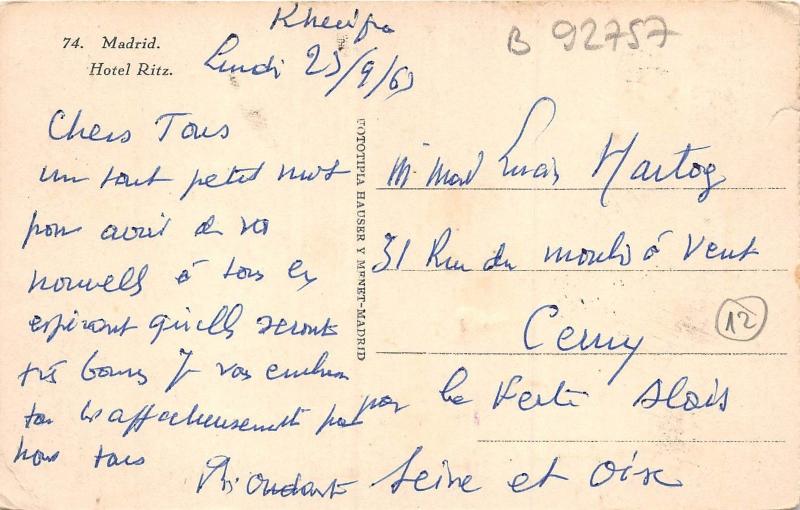 74. Madrid.
Hotel Ritz.
Lundi 23/9/63
B 92757
Chers Tous
un tout petit mot
pour avoir de vos
nouvells à tous les
espérant qu'ells seront
très bonnes Je vous embras
tous affectueusement pour
nous tous
FOTOTIPIA HAUSER Y MENET-MADRID
Hartog
31 Rue du moulin à Vent
Cerny
12
par la Ferté Alais
Seine et Oise